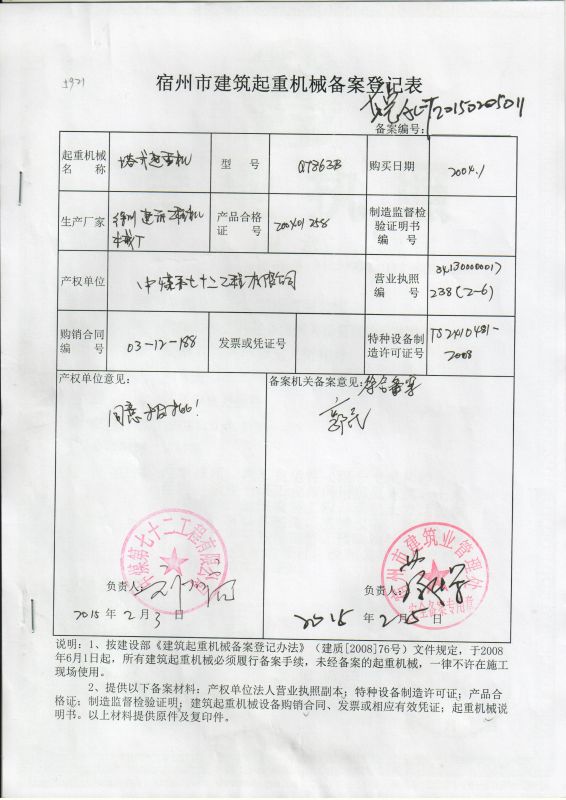 宿州市建筑起重机械备案登记表
2015020501
备案编号:
起重机械名 称
塔式起重机
型 号
QTZ63B
购买日期
2004.1
生产厂家
产品合格证 号
200401258
制造监督检验证明书编 号
产权单位
中煤第七十二工程有限公司
营业执照编 号
238(2-6)
购销合同编 号
03-12-188
发票或凭证号
特种设备制造许可证号
TS2410481-2008
产权单位意见:
同意
备案机关备案意见:符合备案
中煤第七十二工程有限公司
宿州市建筑业管理
安全备案专用章
负责人:
2015年2月3日
负责人:
2015年2月5日
说明:1、按建设部《建筑起重机械备案登记办法》(建质[2008]76号)文件规定,于2008
年6月1日起,所有建筑起重机械必须履行备案手续,未经备案的起重机械,一律不许在施工
现场使用。
2、提供以下备案材料:产权单位法人营业执照副本;特种设备制造许可证;产品合
格证;制造监督检验证明;建筑起重机械设备购销合同、发票或相应有效凭证;起重机械说
明书。以上材料提供原件及复印件。